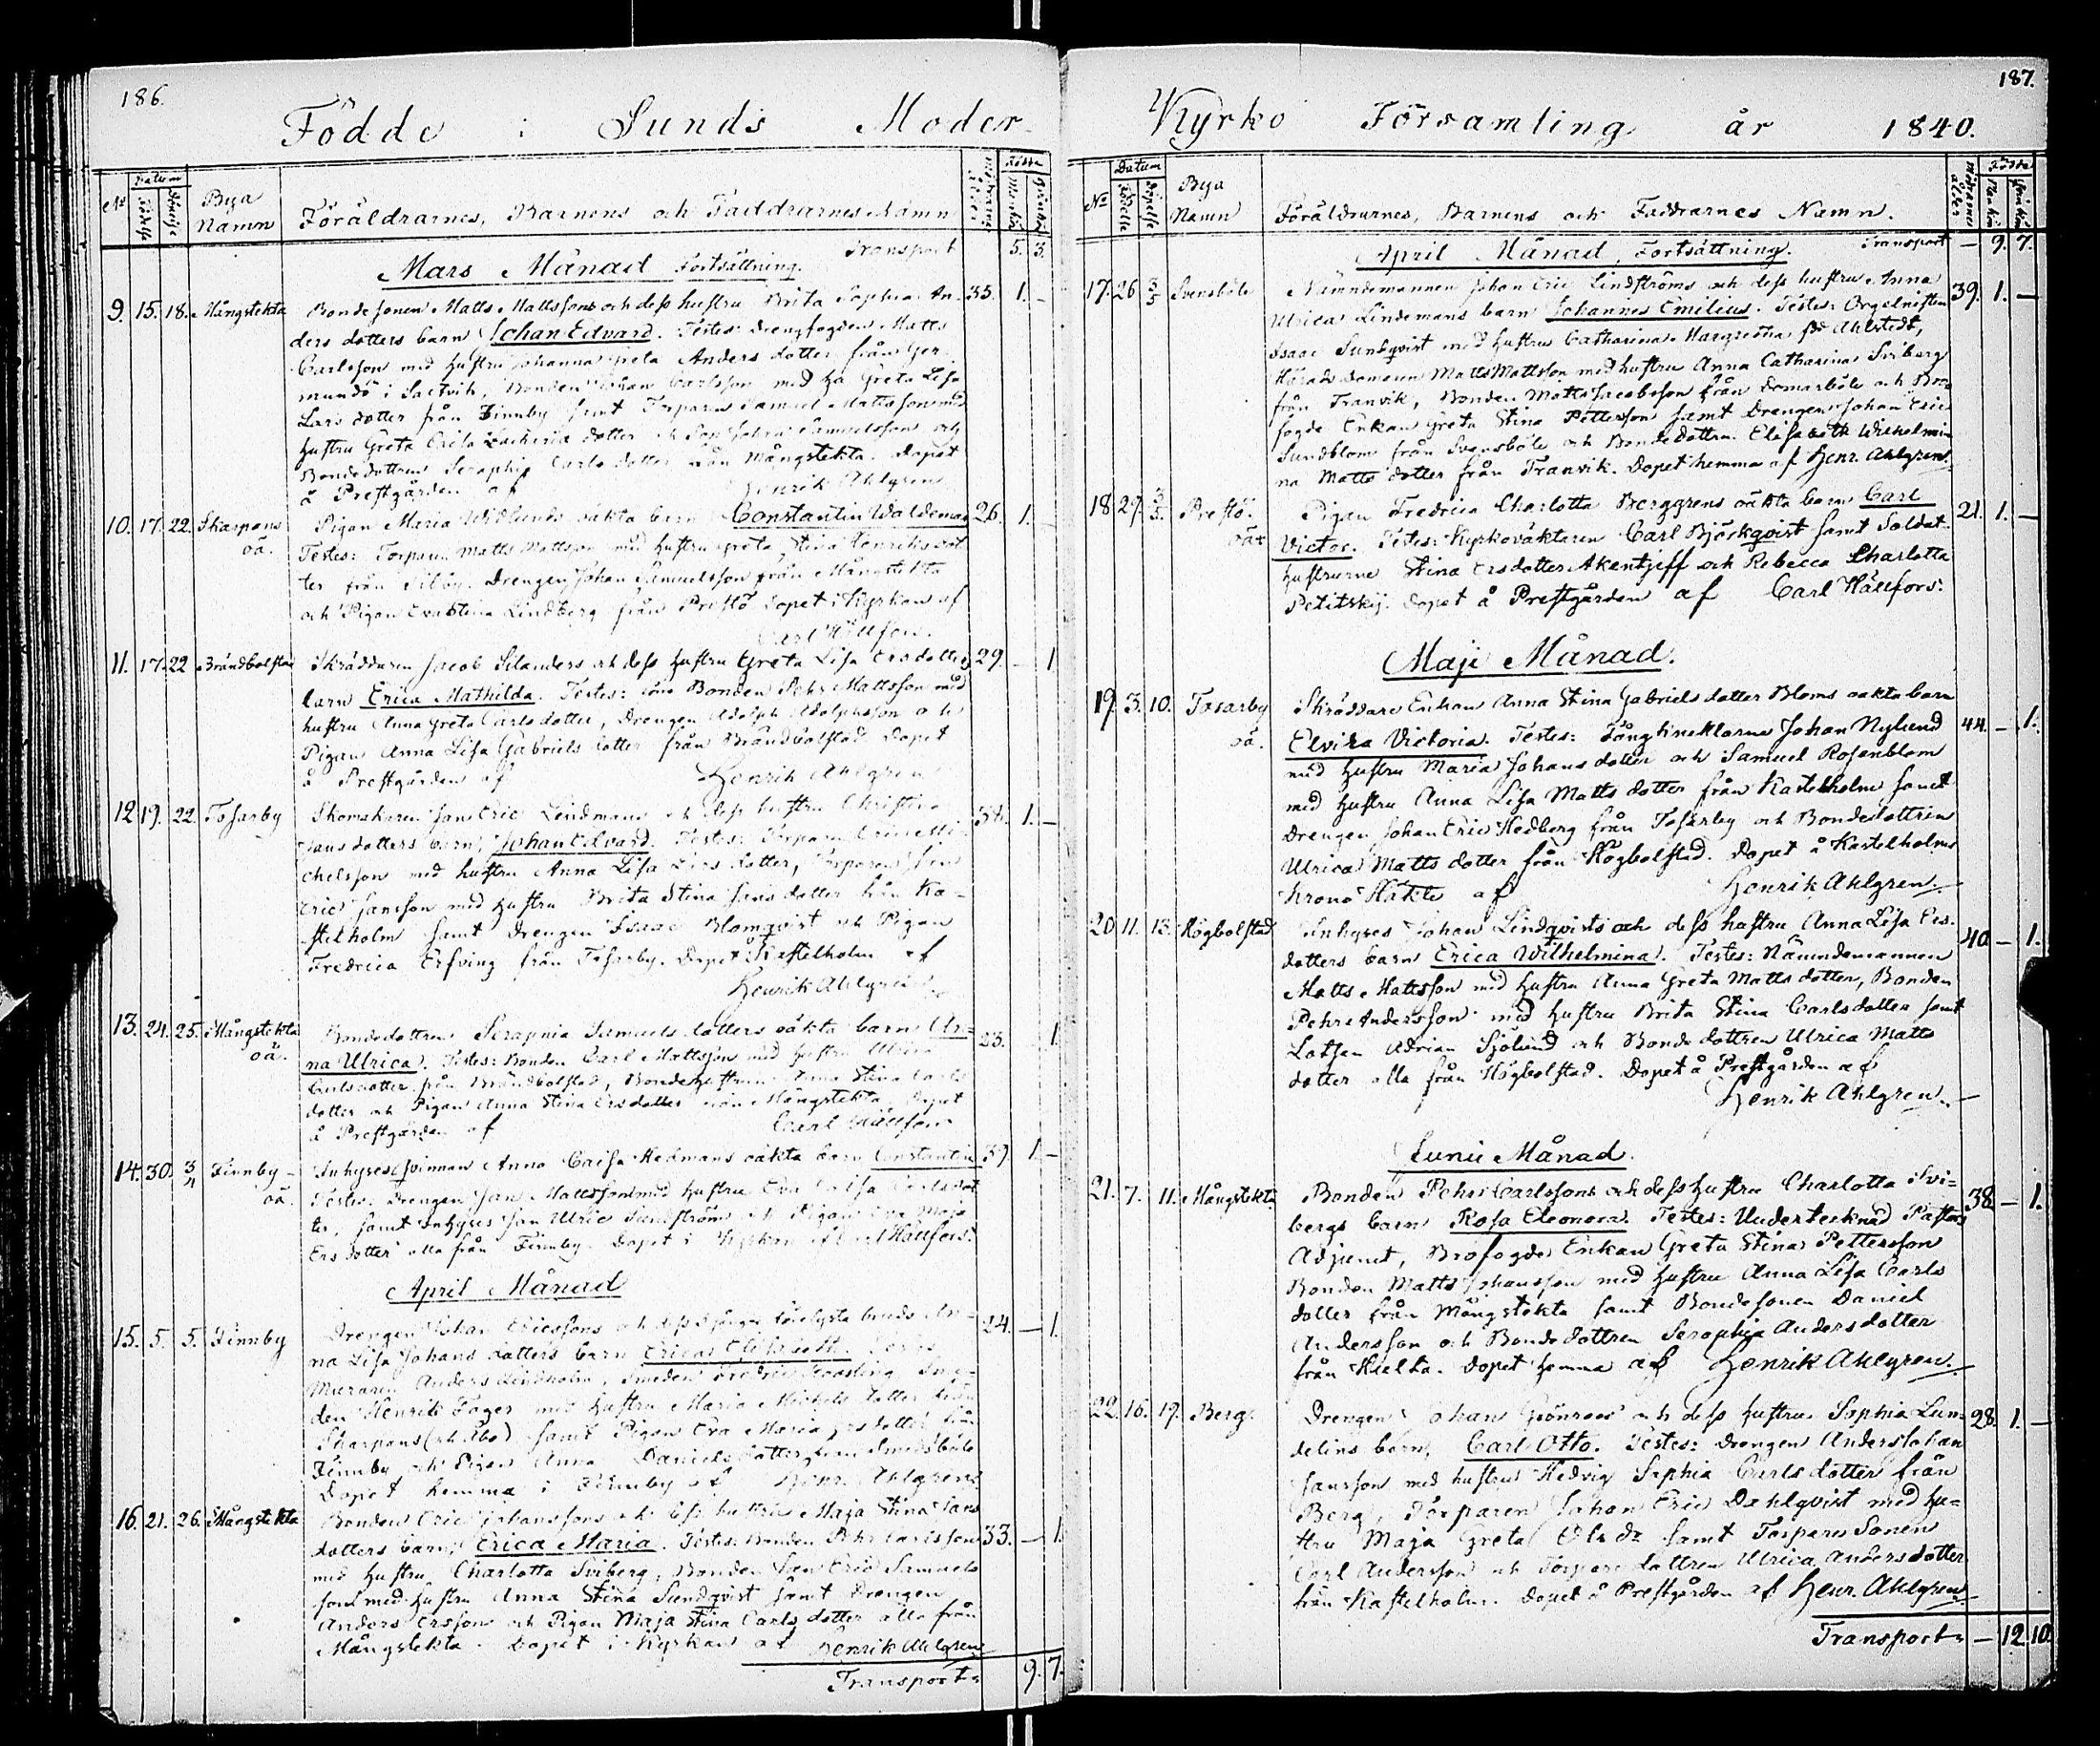 186.
Födde i Sunds Moder-
No
Datum
Födelse
Döpelse
Bya
Namn
Föräldrarnes, Barnens och Faddrarnes Namn
Födde
Mankön
Qvinkön
Mars Månad Fortsättning.
Transport 5. 3.
9. 15. 18. Mångstekta Bondesonen Matts Mattssons och dess hustru Brita Sophia An- 35. 1. -
ders dotters barn Johan Edvard. Testes: Drengfogden Matts
Carlsson med hustru Johanna Greta Anders dotter från Ger-
mundö i Saltvik, Bonden Johan Carlsson med h:a Greta Lisa
Lars dotter från Finnby samt Torparen Samuel Mattsson med
hustru Greta Caisa Zacharia dotter Samuelsson och
Bondedottren Seraphia Carls dotter från Mångstekta. Döpet
å Prestgården af Henrik Ahlgren
10. 17. 22. Skarpans Pigan Maria Widlunds oäkta barn Constantin Waldemar 26. 1.
oä. Testes: Torparen Matts Mattsson med hustru Greta Stina Henriks dot-
ter från Silby. Drengen Johan Samuelsson från Mångstekta
och Pigan Eva Stina Lindberg från Prestö döpet i Kyrkan af
Carl Hällfors.
11. 17. 22 Brändbolstad Skräddaren Jacob Silanders och dess hustru Greta Lisa Ersdotters 29. - 1
barn Erica Mathilda. Testes: Bonden Pehr Mattsson med
hustru Anna Greta Carlsdotter, Drengen Adolph Adolphsson och
Pigan Anna Lisa Gabriels dotter från Brändbolstad Döpet
å Prestgården af Henrik Ahlgren
12. 19. 22. Tosarby Skomakaren Jan Eric Lindmans och dess hustru Christina 34. 1. -
Jans dotters barn, Johan Edvard. Testes: Torparen Eric Mi-
chelsson med hustru Anna Lisa Ersdotter, Torparen Jan
Eric Jansson med hustru Brita Stina Jans dotter från Ka-
stelholm samt Drengen Isaac Blomqvist och Pigan
Fredrica Erfving från Tosarby. Döpet Kastelholm af
Henrik Ahlgren.
13. 24. 25. Mångstekta Bondedottren Seraphia Samuels dotters oäkta barn An- 23. 1
oä. na Ulrica. Testes: Bonden Carl Mattsson med hustru Ulrica
Carlsdotter från Brändbolstad, Bondehustrun Anna Stina Carls
dotter och Pigan Anna Stina Ersdotter från Mångstekta. Döpet
å Prestgården af Carl Hällfors
14. 30. 3/4 Finnby- Inhyses qvinnan Anna Caisa Hedmans oäkta barn Constantin 39. 1. -
oä. Testes: Drengen Jan Mattsson med hustru Eva Caisa Carlsdot-
ter, samt Inhyses Jan Ulric Sundström och Pigan Eva Maja
Ersdotter alla från Finnby. Döpet i Kyrkan af Carl Hällfors.
April Månad
15. 5. 5. Finnby Drengen Johan Ericssons och dess trolofvade An- 24. - 1.
na Lisa Johans dotters barn Erica Elisabeth. Testes
Muraren Anders Lindholm, Smeden
den Henrik Fager med hustru Maria Michels dotter från
Skarpans samt Pigan Eva Maria Ersdotter från
Finnby och Pigan Anna Daniels dotter från Smedsböle
Döpet hemma i Finnby af Henr. Ahlgren
16. 21. 26. Mångstekta Bonden Eric Johanssons och dess hustru Maja Stina Jans 33. - 1.
dotters barn, Erica Maria. Testes: Bonden Pehr Carlsson
med hustru Charlotta Sviberg, Bonden Jan Eric Samuels
son med hustru Anna Stina Sundqvist samt Drengen
Anders Ersson och Pigan Maja Stina Carls dotter alla från
Mångstekta. Döpet i Kyrkan af Henrik Ahlgren
Transport= 9. 7.
187.
Kyrko Församling år 1840.
No
Datum
Födelse
Döpelse
Bya
Namn
Föräldrarnes, Barnens och Faddrarnes Namn.
Mödrarnes
ålder
Födde
Mankön
Qvinkön
April Månad, Fortsättning.
Transport - 9. 7.
17. 26 3/5 Svensböle Nämndemannen Johan Eric Lindströms och dess hustru Anna 39. 1. -
Ulrica Lindemans barn Johannes Emilius. Testes: Orgelnisten
Isaac Sundqvist med hustru Catharina Margretha född Ahlstedt,
Härads domaren Matts Mattsson med hustru Anna Catharina Sviberg
från Tranvik, Bonden Matts Jacobsson från Domarböle och Bro-
fogde Enkan Greta Stina Pettersson samt Drengen Johan Eric
Sundblom från Svensböle och Bondedottren Elisabeth Wilhelmi-
na Matts dotter från Tranvik. Döpet hemma af Henr. Ahlgren.
18 27. 3/5. Prestö. Pigan Fredrica Charlotta Berggrens oäkta barn Carl 21. 1. -
oä Victor. Testes: Kyrkoväktaren Carl Björkqvist samt Soldat-
hustrurne Stina Ersdotter Akentjeff och Rebecca Charlotta
Petitskij. Döpet å Prestgården af Carl Hällfors.
Maji Månad.
19. 3. 10. Tosarby Skräddare Enkan Anna Stina Gabriels dotter Bloms oäkta barn 44. - 1.
oä. Elvira Victoria. Testes: Fångknektarne Johan Nylund
med hustru Maria Johans dotter och Samuel Rosenblom
med hustru Anna Lisa Matts dotter från Kastelholm samt
Drengen Johan Eric Hedberg från Tosarby och Bondedottren
Ulrica Matts dotter från Högbolstad. Döpet å Kastelholms
Krono Häkte af Henrik Ahlgren.
20 11. 13. Högbolstad Inhyses Johan Lindqvists och dess hustru Anna Lisa Ers- 40 - 1.
dotters barn Erica Wilhelmina. Testes: Nämndemannen
Matts Mattsson med hustru Anna Greta Matts dotter, Bonden
Pehr Andersson med hustru Brita Stina Carlsdotter samt
Lotsen Adrian Sjölund och Bonde dottren Ulrica Matts
dotter alla från Högbolstad. Döpet å Prestgården af
Henrik Ahlgren.
Junii Månad.
21. 7. 11. Mångstekta Bonden Pehr Carlssons och dess hustru Charlotta Svi- 38 - 1.
bergs barn Rosa Eleonora. Testes: Undertecknad Pastors
Adjunct, Brofogde Enkan Greta Stina Pettersson
Bonden Matts Johansson med hustru Anna Lisa Carls
dotter från Mångstekta samt Bondesonen Daniel
Andersson och Bonde dottren Seraphia Andersdotter
från Hulta. Döpet hemma af Henrik Ahlgren.
22. 16. 19. Berg. Drengen Johan Grönroos och dess hustru Sophia Lun- 28. 1. -
delins barn, Carl Otto. Testes: Drengen Anders Johan
Jansson med hustru Hedvig Sophia Carls dotter från
Berg, Torparen Johan Eric Dahlqvist med hu-
stru Maja Greta Ols dr samt Torpare Sonen
Carl Andersson och Torpare dottren Ulrica Andersdotter
från Kastelholm. Döpet å Prestgården af Henr. Ahlgren
Transport= - 12. 10.